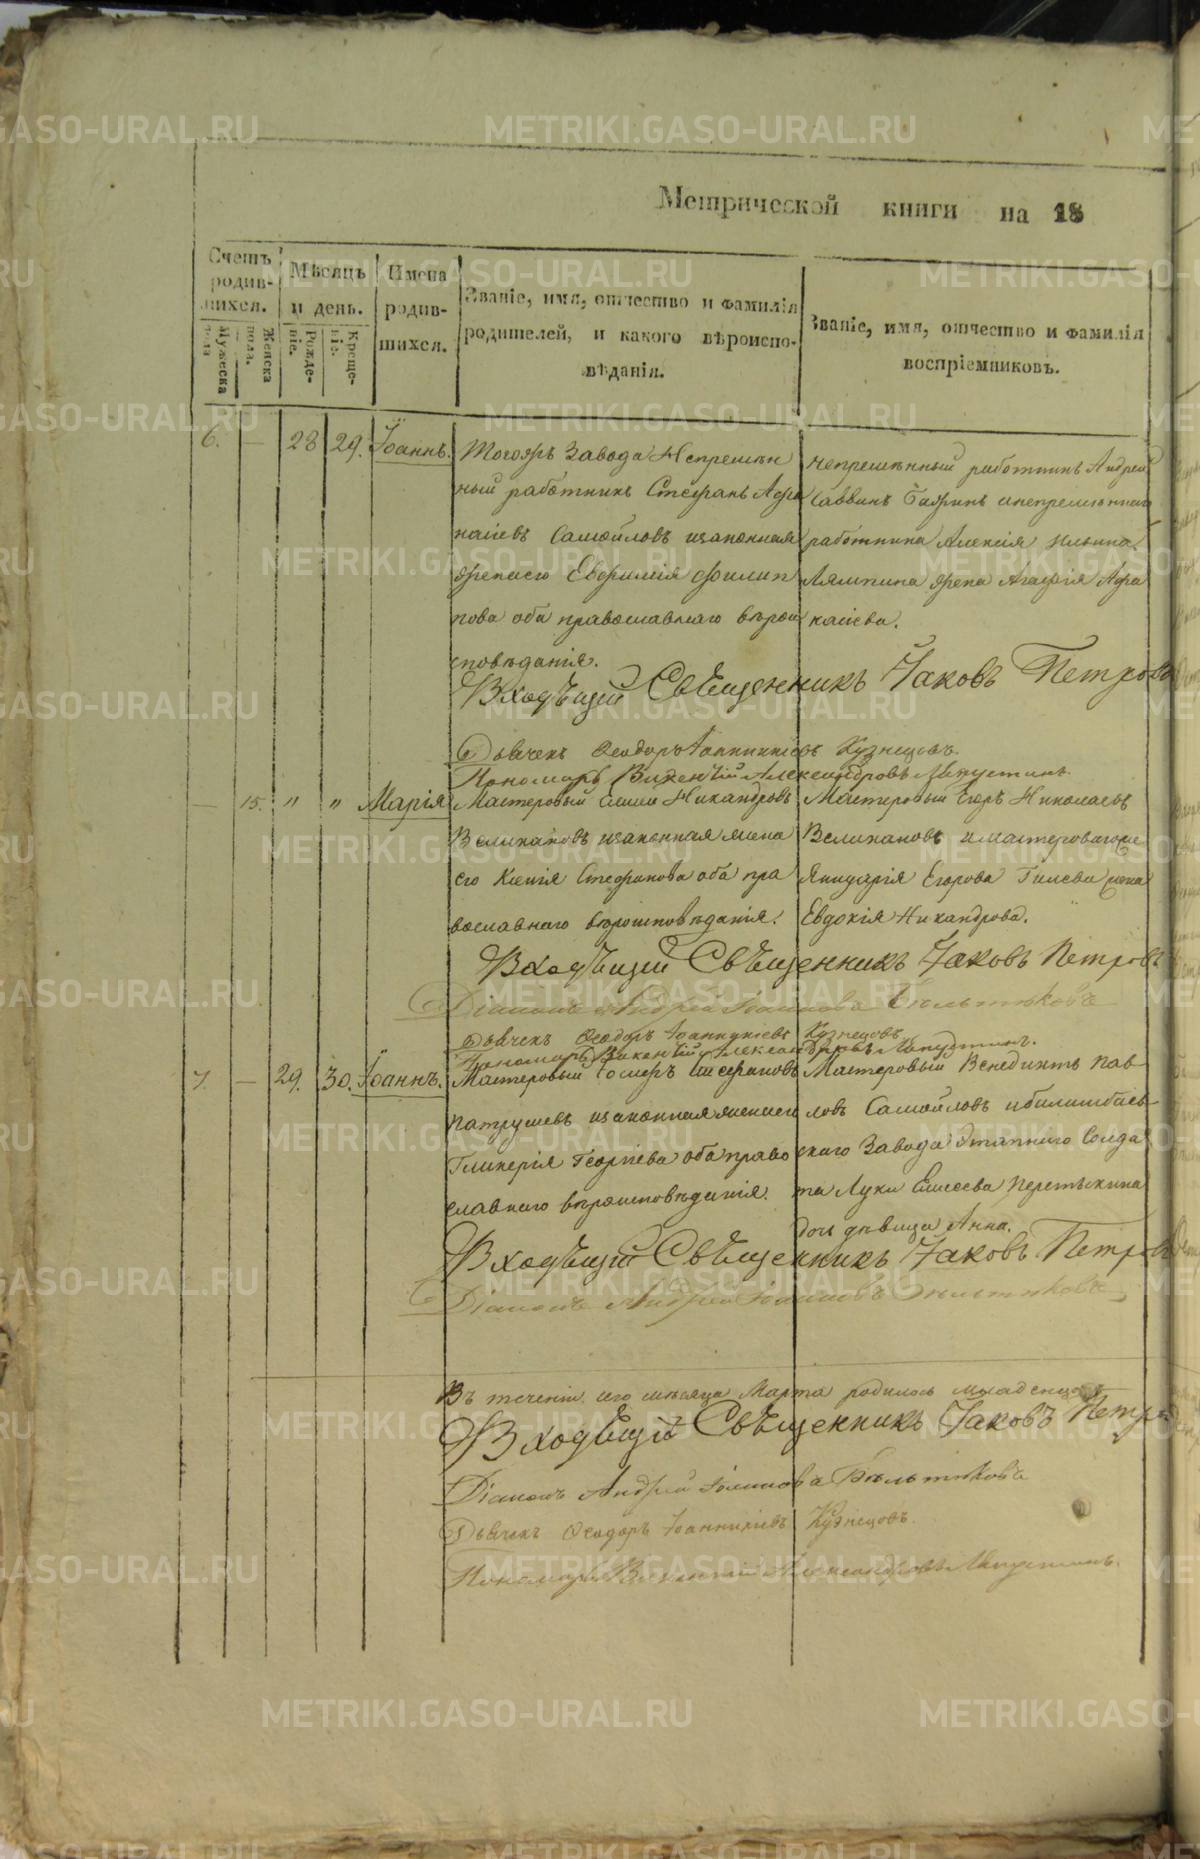 Метрической книги на 18
Счетъ родив-шихся.
Мужеска пола
Женска пола.
Мѣсяцъ и день.
Рожде-ніе.
Креще-ніе.
Имена родив-шихся.
Званіе, имя, отчество и фамилія
родителей, и какого вѣроиспо-
вѣданія.
Званіе, имя, отчество и фамилія
воспріемниковъ.
6. — 28 29. Іоаннъ.
Тогожъ Завода Непремѣн
ный работникъ Стефанъ Афа
насіевъ Самойловъ изаконная
жена его Евфимія Филип
пова оба православнаго вѣрои
сповѣданія.
непремѣнный работникъ Андрей
Саввинъ и непремѣннаго
работника Алексія Ильина
Лямпина жена Агафія Афа
насіева.
Входѣщій Свѣщенникъ Іаковъ Петровъ
Дьячекъ Ѳеодоръ Іоанникіевъ Кузнецовъ.
Пономарь Викентій Александровъ
— 15. " " Марія
Мастеровый Никандровъ
Великановъ изаконная жена
его Ксенія Стефанова оба пра
вославнаго вѣроисповѣданія.
Мастеровый Егоръ Николаевъ
Великановъ и мастероваго
Яннуарія Егорова Гилева жена
Евдокія Никандрова.
Входѣщій Свѣщенникъ Іаковъ Петровъ
Діаконъ Андрей Іоаннова
Дьячекъ Ѳеодоръ Іоанникіевъ Кузнецовъ
Пономарь Викентій Александровъ
7. — 29. 30. Іоаннъ.
Мастеровый Стефановъ
Патрушевъ изаконная жена его
Гликерія Георгіева оба право
славнаго вѣроисповѣданія.
Мастеровый Венедиктъ Пав-
ловъ Самойловъ и билимбаев-
скаго Завода этапнаго Солда
та Луки Елисеева Перетыкина
дочь дѣвица Анна.
Входѣщій Свѣщенникъ Іаковъ Петровъ
Діаконъ Андрей Іоанновъ
Въ теченіи сего мѣсяца Марта родилось младенцовъ
Входѣщій Свѣщенникъ Іаковъ Петров
Діаконъ Андрей Іоаннова
Дьячекъ Ѳеодоръ Іоанникіевъ Кузнецовъ.
Пономарь Викентій Александровъ
METRIKI.GASO-URAL.RU